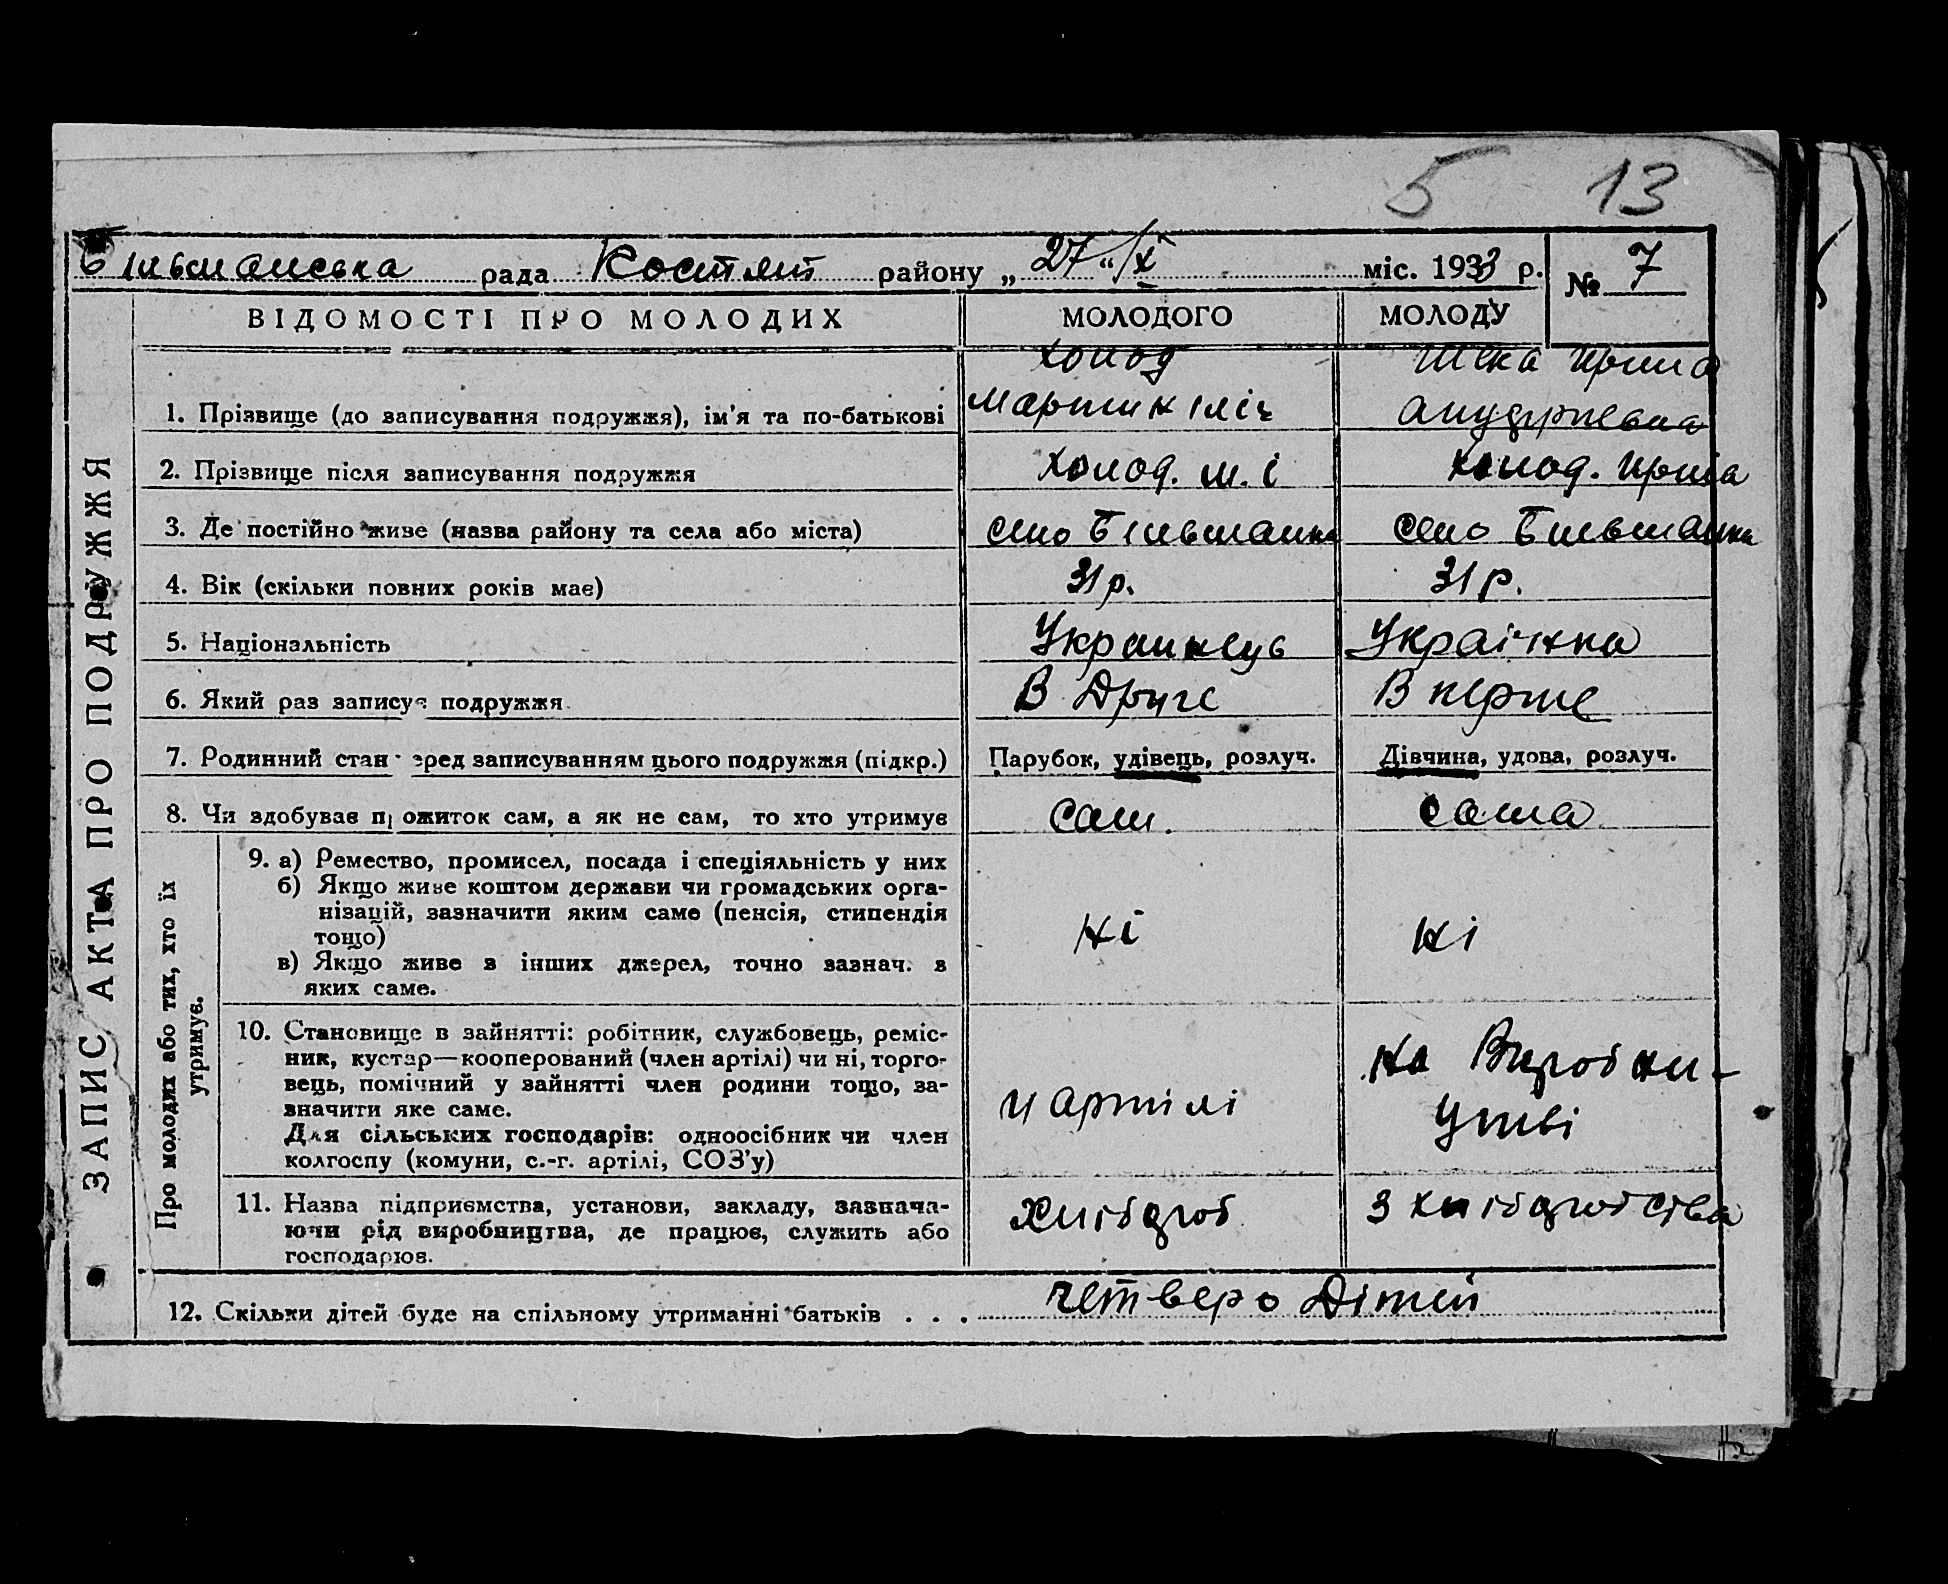 5 13
Більшанська рада Костянт району „27“/X міс. 1933 р. № 7
ЗАПИС АКТА ПРО ПОДРУЖЖЯ
ВІДОМОСТІ ПРО МОЛОДИХ МОЛОДОГО МОЛОДУ
Холод
Мартин Ілліч
1. Прізвище (до записування подружжя), ім'я та по-батькові
2. Прізвище після записування подружжя Холод. М. І Холод. Ирина
3. Де постійно живе (назва району та села або міста) село Більшанка село Більшанка
4. Вік (скільки повних років має) 31 р. 31 р.
5. Національність Украинець Украінка
6. Який раз записує подружжя В Друге В перше
7. Родинний стан перед записуванням цього подружжя (підкр.) Парубок, удівець, розлуч. Дівчина, удова, розлуч.
8. Чи здобуває прожиток сам, а як не сам, то хто утримує сам. сама
Про молодих або тих, хто їх
утримує.
9. а) Ремество, промисел, посада і спеціяльність у них
б) Якщо живе коштом держави чи громадських орга-
нізацій, зазначити яким саме (пенсія, стипендія
тощо)
в) Якщо живе з інших джерел, точно зазнач. з
яких саме.
ні ні
10. Становище в зайнятті: робітник, службовець, реміс-
ник, кустар—кооперований (член артілі) чи ні, торго-
вець, помічний у зайнятті член родини тощо, за-
значити яке саме.
Для сільських господарів: одноосібник чи член
колгоспу (комуни, с.-г. артілі, СОЗ'у)
у артілі
на Виробни-
цтві
11. Назва підприємства, установи, закладу, зазнача-
ючи рід виробництва, де працює, служить або
господарює.
Хлібороб з хліборобства
12. Скільки дітей буде на спільному утриманні батьків . . . четверо Дітей